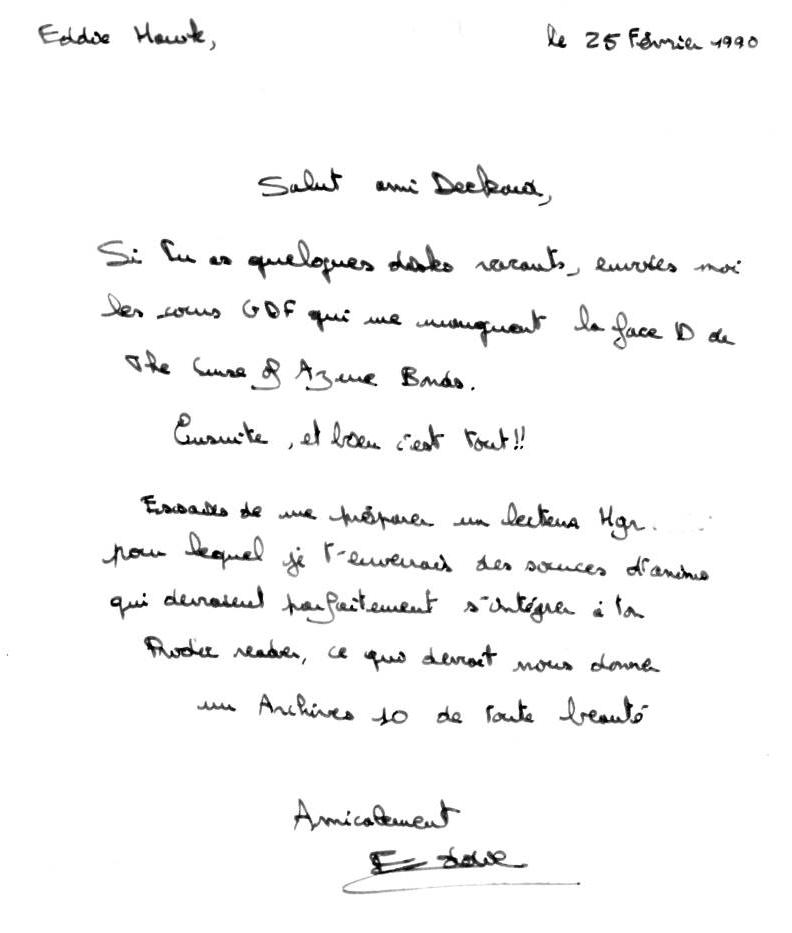 Eddie Hawk,
le 25 Février 1990
Salut ami Deckard,
Si Tu as quelques disks vacants, envoies moi
les cours GDF qui me manquent la face D de
The Curse of Azure Bonds.
Ensuite, et bien c'est tout!!
Essaies de me préparer un lecteur Hgr.
pour lequel je t'enverrais des sources d'anims
qui devraient parfaitement s'intégrer à ton
reader, ce qui devrait nous donner
un Archives 10 de toute beauté
Amicalement
Eddie